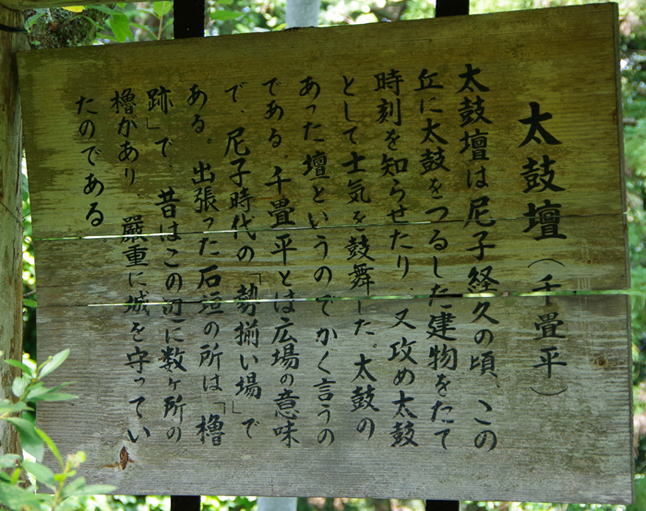 太鼓壇（千畳平）
太鼓壇は尼子経久の頃、この
丘に太鼓をつるした建物をたて
時刻を知らせたり、又攻め太鼓
として士気を鼓舞した。太鼓の
あった壇というのでかく言うの
である。千畳平とは広場の意味
で、尼子時代の「勢揃い場」で
ある。出張った石垣の所は「櫓
跡」で、昔はこの辺に数ヶ所の
櫓があり、厳重に城を守ってい
たのである